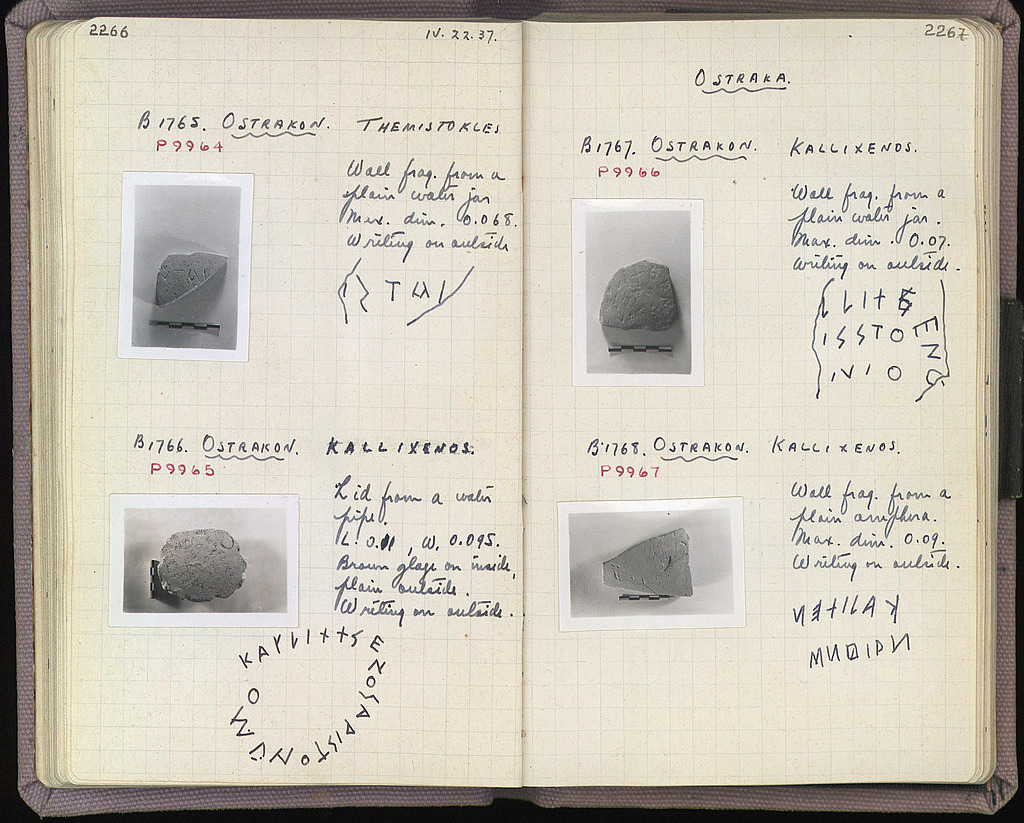 2266
IV. 22. 37.
B 1765. OSTRAKON. THEMISTOKLES
P 9964
Wall frag. from a
plain water jar
Max. dim. 0.068.
Writing on outside
B 1766. OSTRAKON. KALLIXENOS.
P 9965
Lid from a water
pipe.
L. 0.11, W. 0.095.
Brown glaze on inside,
plain outside.
Writing on outside.
2267
OSTRAKA.
B 1767. OSTRAKON. KALLIXENOS.
P 9966
Wall frag. from a
plain water jar.
Max. dim. 0.07.
Writing on outside.
B 1768. OSTRAKON. KALLIXENOS.
P 9967
Wall frag. from a
plain amphora.
Max. dim. 0.09.
Writing on outside.